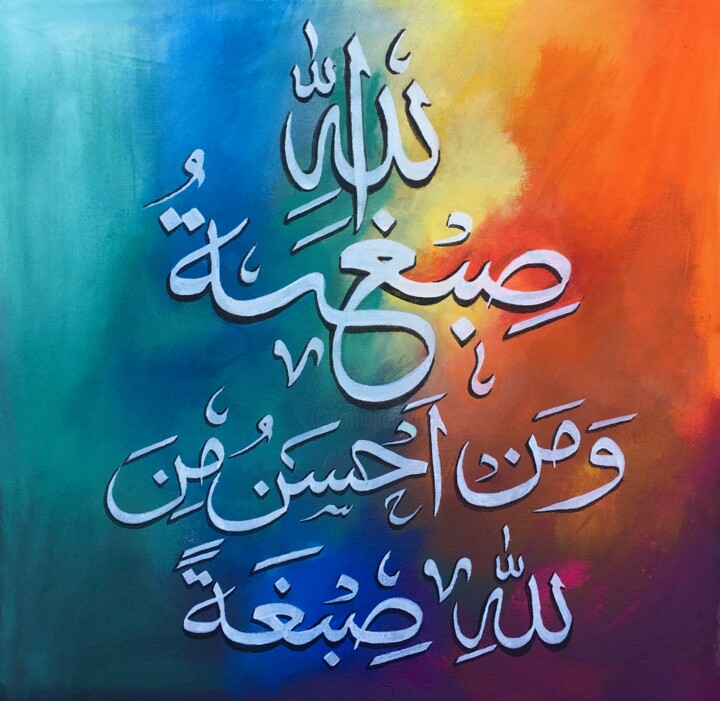 صِبْغَةُ
اللّٰهِ
وَمَنْ اَحْسَنُ مِنَ
للّٰهِ صِبْغَةً